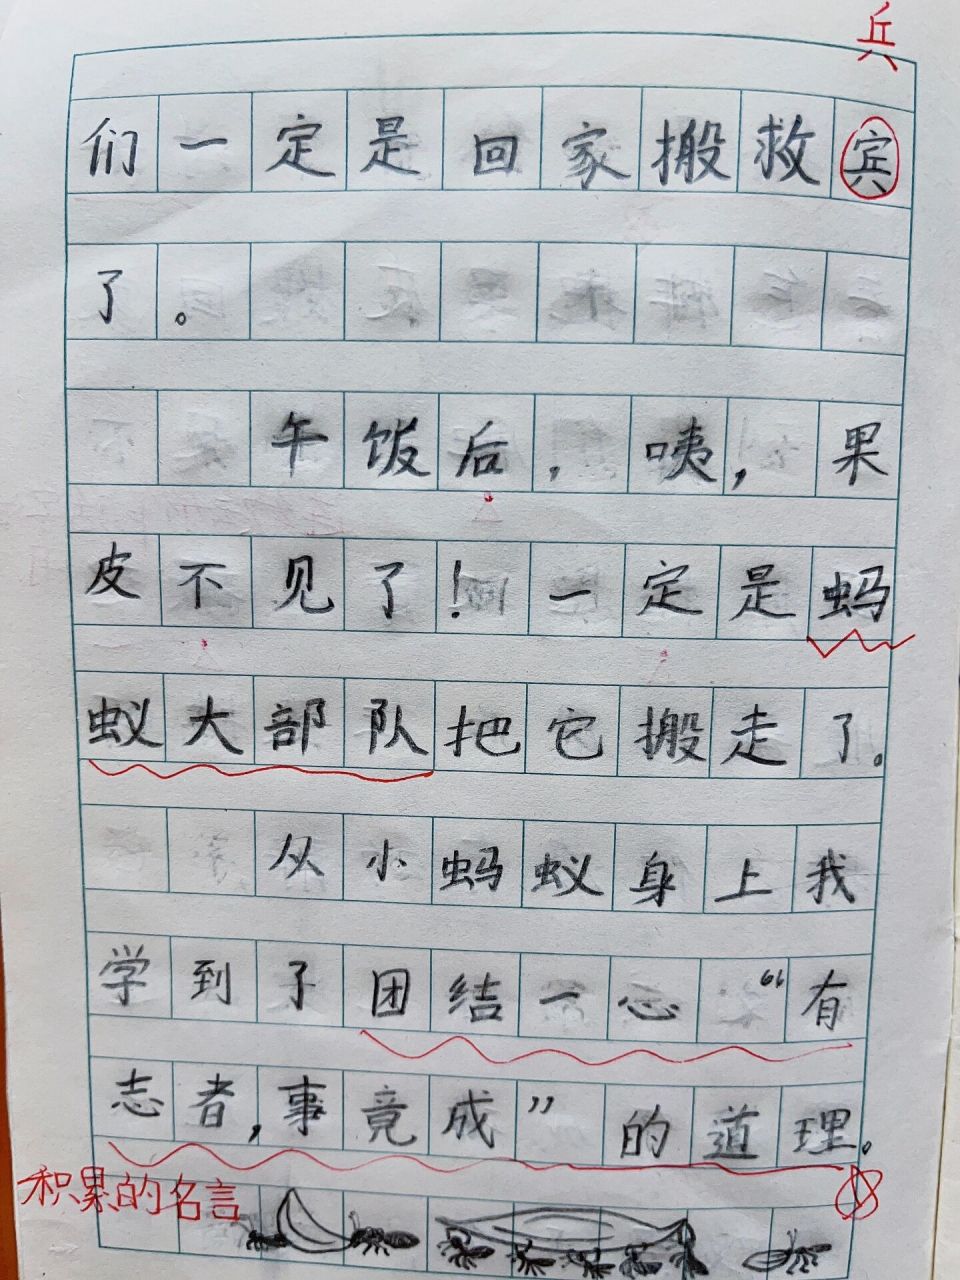 兵
们一定是回家搬救宾
了。
午饭后，咦，果
皮不见了！一定是蚂
蚁大部队把它搬走了。
从小蚂蚁身上我
学到了团结一心“有
志者，事竟成”的道理。
积累的名言